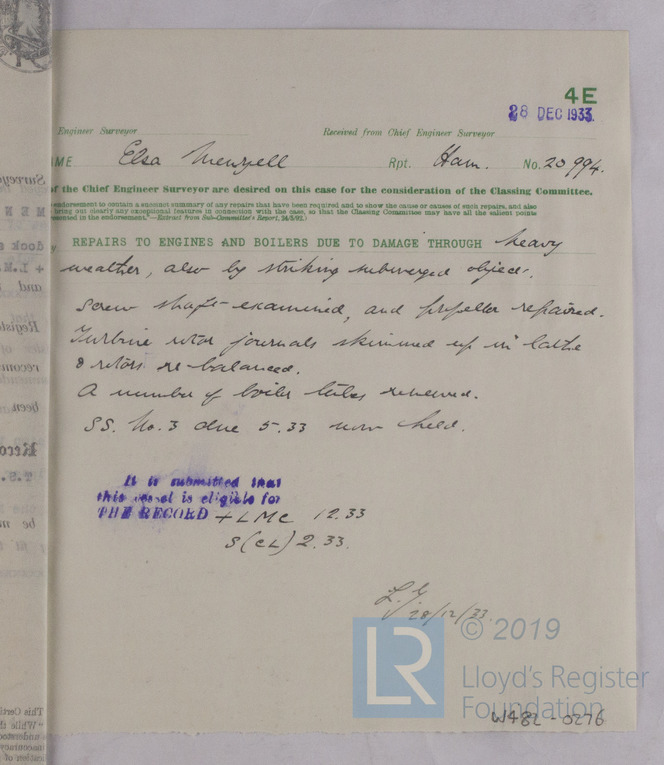 4E
28 DEC 1933
Engineer Surveyor Received from Chief Engineer Surveyor
AME Elsa Menzell Rpt. Ham. No. 20994.
of the Chief Engineer Surveyor are desired on this case for the consideration of the Classing Committee.
endorsement to contain a succinct summary of any repairs that have been required and to show the cause or causes of such repairs, and also
bring out clearly any exceptional features in connection with the case, so that the Classing Committee may have all the salient points
presented in the endorsement."—Extract from Sub-Committee's Report,
REPAIRS TO ENGINES AND BOILERS DUE TO DAMAGE THROUGH heavy
weather, also by striking submerged object.
Screw shaft examined, and propeller repaired.
Turbine rotor journals skimmed up in lathe
& rotors re-balanced.
A number of boiler tubes renewed.
SS. No. 3 due 5.33 now held.
It is submitted that
this vessel is eligible for
THE RECORD + LMC 12.33
S(CL) 2.33.
28/12/33.
LR
© 2019
Lloyd's Register
Foundation
W482-0276